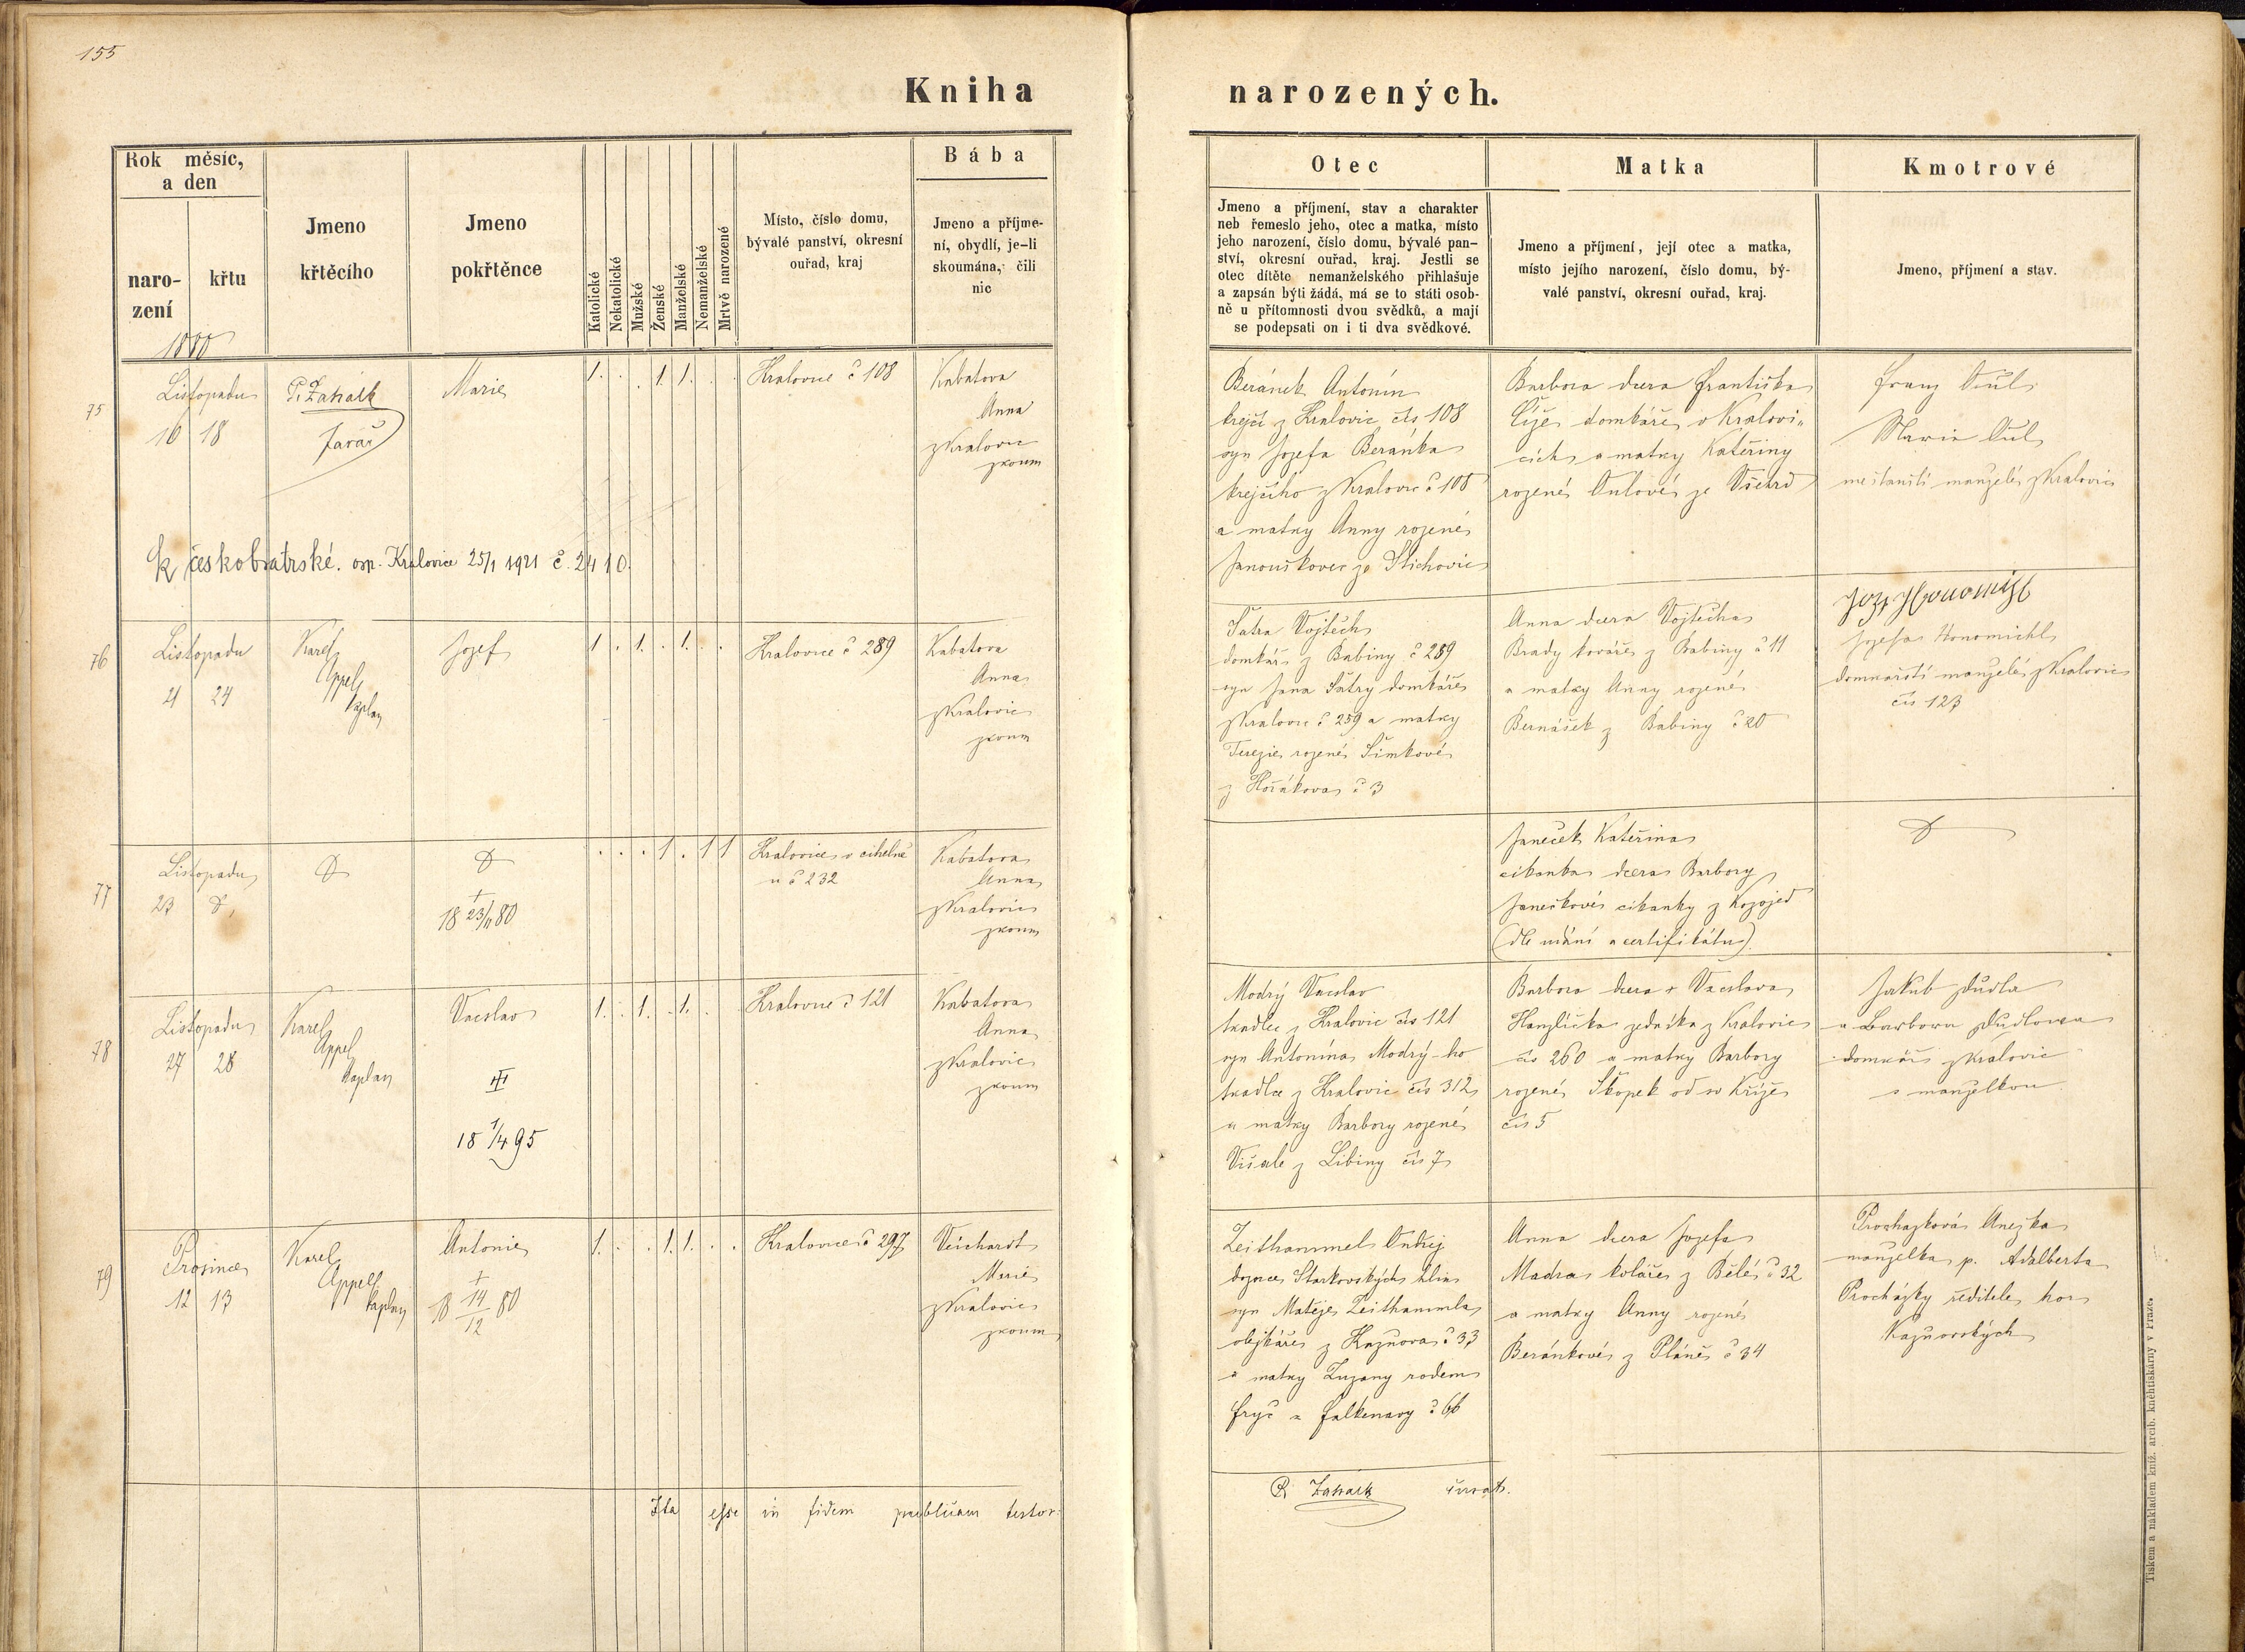 155
Kniha narozených.
Rok měsíc,
a den
naro-
zení
křtu
1880
Jmeno
křtěcího
Jmeno
pokřtěnce
Katolické
Nekatolické
Mužské
Ženské
Manželské
Nemanželské
Mrtvě narozené
Místo, číslo domu,
bývalé panství, okresní
ouřad, kraj
Bába
Jmeno a příjme-
ní, obydlí, je-li
skoumána, čili
nic
Otec
Jmeno a příjmení, stav a charakter
neb řemeslo jeho, otec a matka, místo
jeho narození, číslo domu, bývalé pan-
ství, okresní ouřad, kraj. Jestli se
otec dítěte nemanželského přihlašuje
a zapsán býti žádá, má se to státi osob-
ně u přítomnosti dvou svědků, a mají
se podepsati on i ti dva svědkové.
Matka
Jmeno a příjmení, její otec a matka,
místo jejího narození, číslo domu, bý-
valé panství, okresní ouřad, kraj.
Kmotrové
Jmeno, příjmení a stav.
75
Listopadu
16 18
P. Zahálk
farář
Marie
1. . . 1. 1. . .
Kralovice č 108
Kabatova
Anna
z Kralovic
zkoum
Beránek Antonín
krejčí z Kralovic čís 108
syn Jozefa Beránka
krejčího z Kralovic č 108
a matky Anny rozené
Janouškovec ze Stichovic
Barbora dcera Františka
Číže domkáře v Kralovi„
cích a matky Kateřiny
rozené Oulové ze Všehrd
Franz Oul
Marie Oul
mešťanští manželé z Kralovic
k českobratrské. osn. Kralovice 25/1 1921 č. 2410.
76
Listopadu
21 24
Karel
Appel
kaplan
Jozef
1 . 1. . 1. . .
Kralovice č 289
Kabatova
Anna
z Kralovic
zkoum
Šatra Vojtěch
domkář z Babiny č 289
syn Jana Šatry domkáře
z Kralovic č 259 a matky
Terezie rozené Šimkové
z Hořákova č 3
Anna dcera Vojtěcha
Brady kováře z Babiny č 11
a matky Anny rozené
Bernášek z Babiny č 20
Jozefa Honomichl
domkářští manželé z Kralovic
čís 123
77
Listopadu
23
†
18 23/11 80
. . . 1 . 1 1
Kralovice v cihelně
u č 232
Kabatova
Anna
z Kralovic
zkoum
Janeček Kateřina
cikánka dcera Barbory
Janečkové cikánky z Kozojed
(dle udání a certifikátu).
78
Listopadu
27 28
Karel
Appel
kaplan
Vácslav
18 1/4 95
1. . 1. . 1. . .
Kralovice č 121
Kabatova
Anna
z Kralovic
zkoum
Modrý Vácslav
tkadlec z Kralovic čís 121
syn Antonína Modrý-ho
tkadlce z Kralovic čís 312
a matky Barbory rozené
z Libiny čís 7
Barbora dcera Vácslava
Hanzlíčka zedníka z Kralovic
čís 260 a matky Barbory
rozené Škopek od sv Kříže
čís 5
Jakub Dudla
a Barbora Dudlova
domkář z Kralovic
s manželkou
79
Prosince
12 13
Karel
Appel
kaplan
Antonie
†
18 14/12 80
1. . . 1. 1. . .
Kralovice č 297
Veichardt
Marie
z Kralovic
zkoum
Zeithammel Ondřej
dozorce Starkovských hlin
syn Matěje Zeithammla
olejkáře z Kaznova č 33
a matky Zuzany rodem
Fryč z Falkenavy č 66
Anna dcera Jozefa
Madra koláře z Bělé č 32
a matky Anny rozené
Beránkové z Pláně č 34
Procházková Anežka
manželka p. Adalberta
Procházky ředitele hor
Kaznovských
Ita esse in fidem publicam testor:
P. Zahálk
Tiskem a nákladem kníž. arcib. kněhtiskárny v Praze.